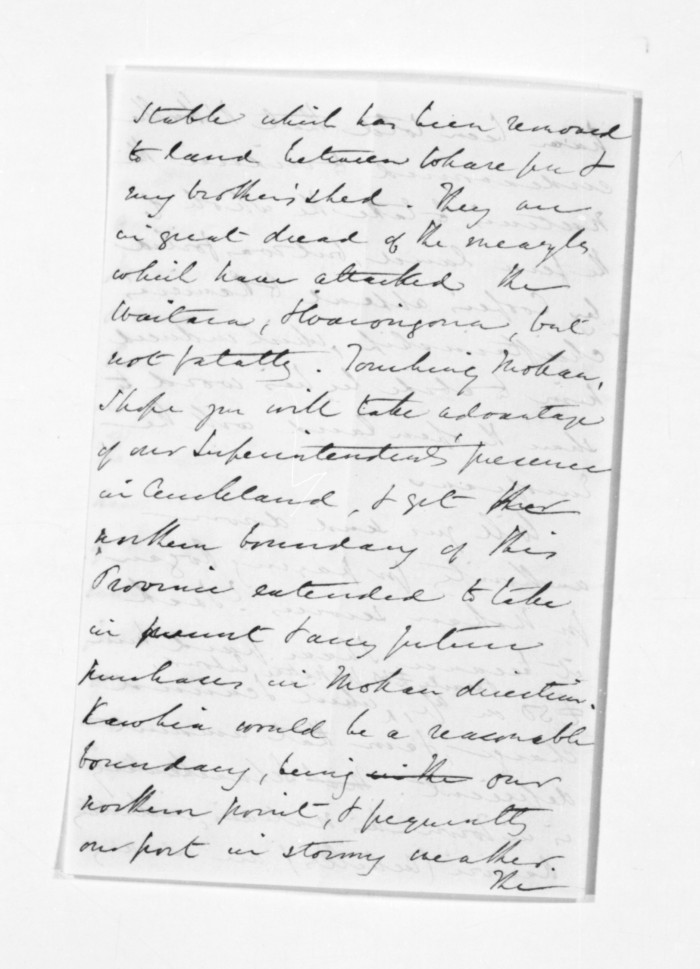 Stable which has been removed
to land between Whare pu &
my brother's shed. They are
in great dread of the measles
which have attacked the
Waitara, & Waiongona, but
not fatally. Touching Mokau,
I hope you will take advantage
of our Superintendent's presence
in Auckland, & get
northern boundary of this
Province extended to take
in present & any future
purchases in Mokau direction.
Kawhia would be a reasonable
boundary, being in the our
northern point, & frequently
our port in stormy weather.
The